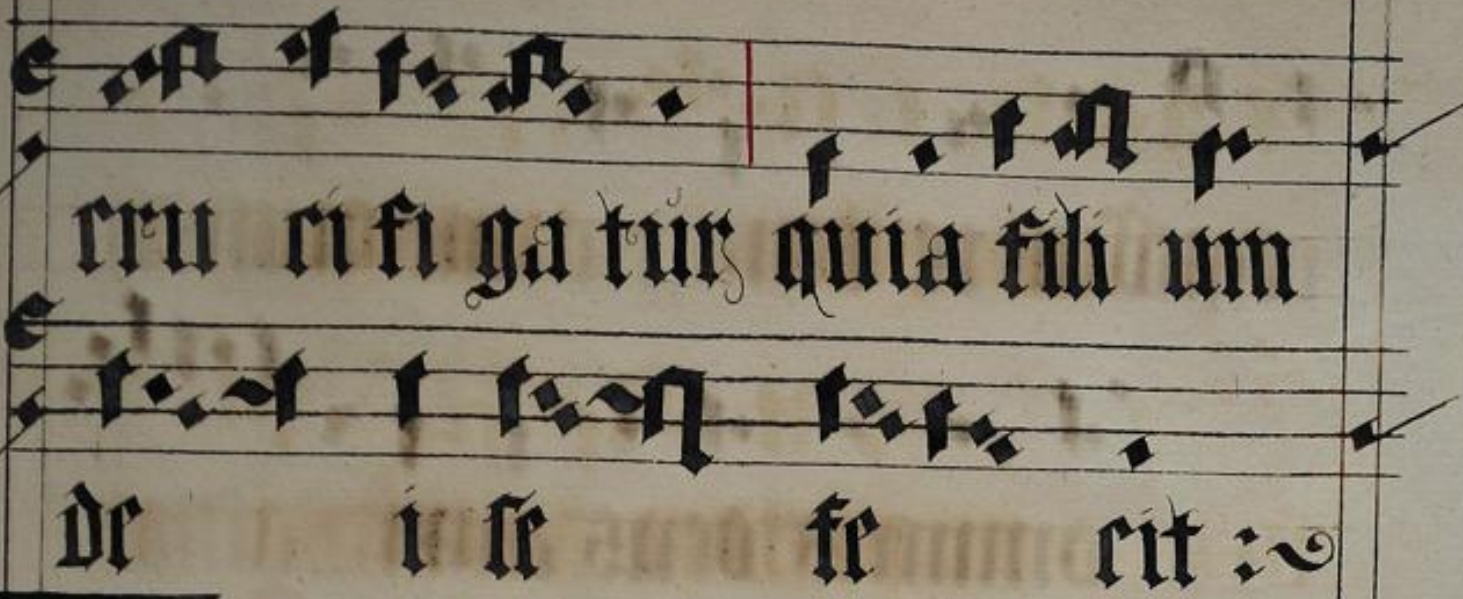 cru ci fi ga tur quia fili um
de i se fe cit :~